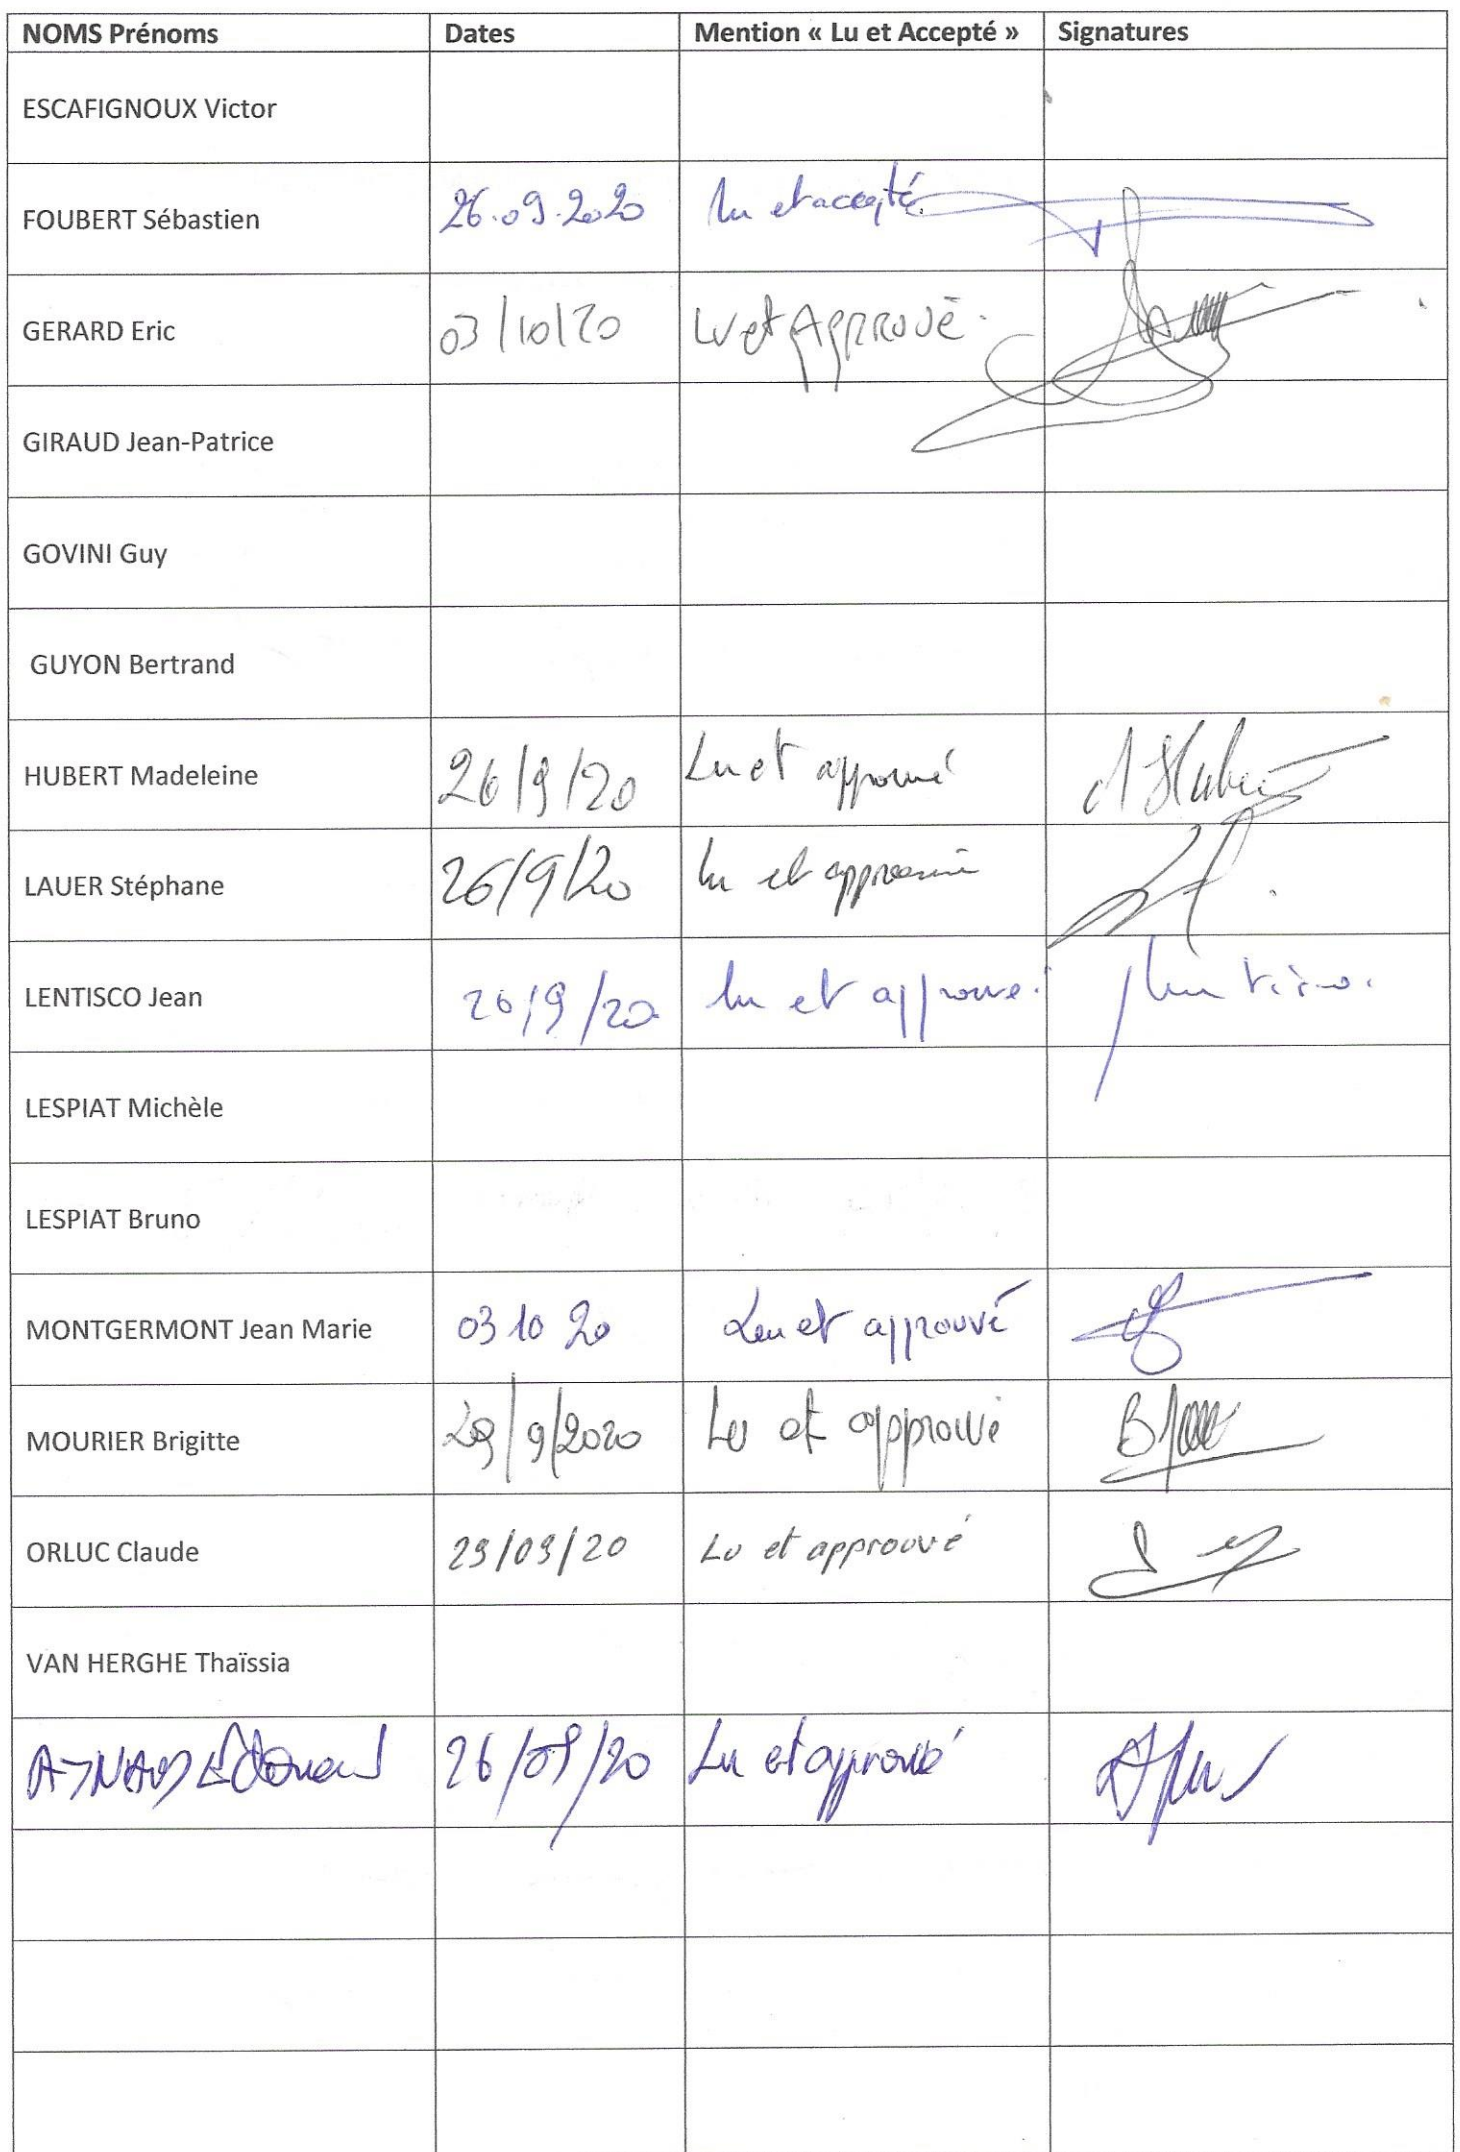 NOMS Prénoms Dates Mention « Lu et Accepté » Signatures
ESCAFIGNOUX Victor
FOUBERT Sébastien 26.09.2020 lu et accepté
GERARD Eric 03/10/20 Lu et Approuvé
GIRAUD Jean-Patrice
GOVINI Guy
GUYON Bertrand
HUBERT Madeleine 26/9/20 Lu et approuvé Hubert
LAUER Stéphane 26/9/20 lu et approuvé
LENTISCO Jean 26/9/20 lu et approuvé
LESPIAT Michèle
LESPIAT Bruno
MONTGERMONT Jean Marie 03 10 20 Lu et approuvé
MOURIER Brigitte 29/9/2020 Lu et approuvé
ORLUC Claude 29/09/20 Lu et approuvé
VAN HERGHE Thaïssia
26/09/20 Lu et approuvé